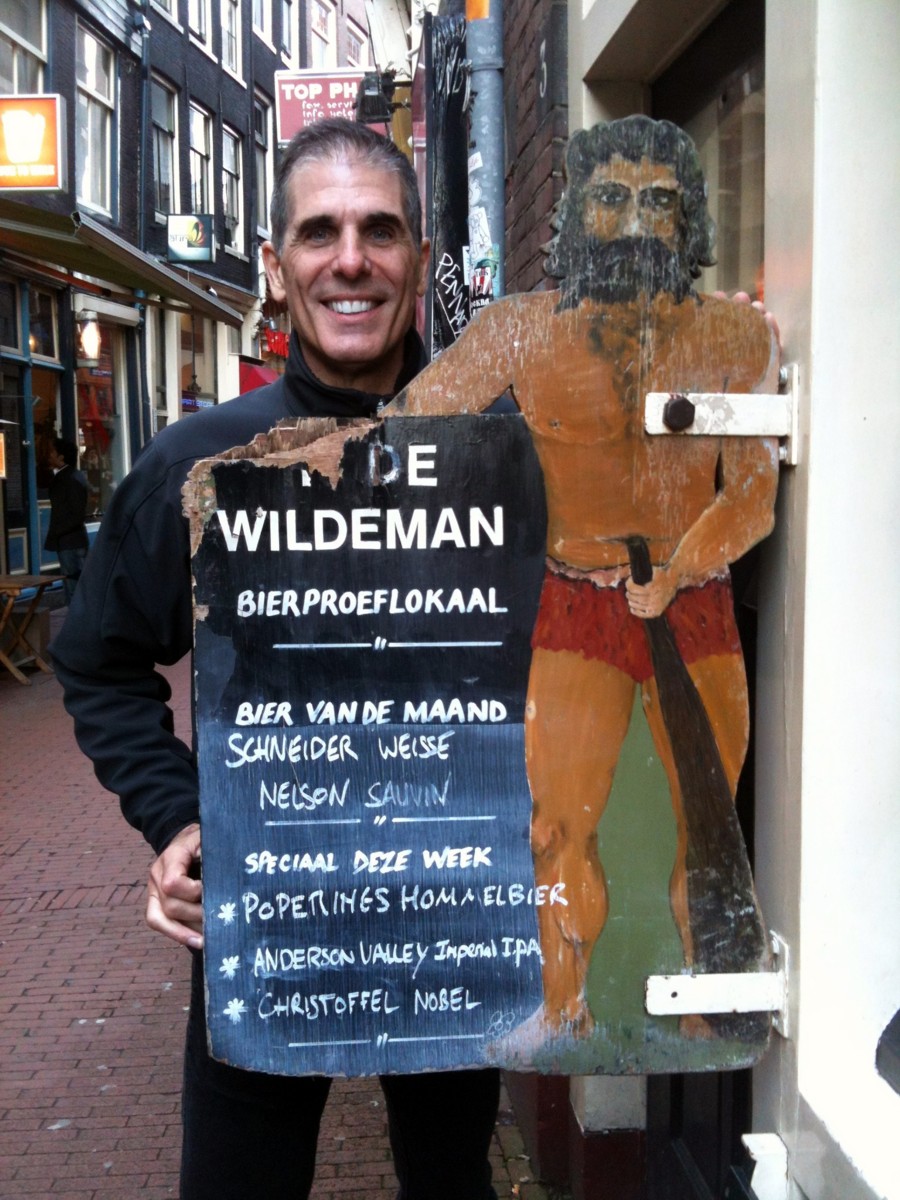 TOP PH
PENN
DE
WILDEMAN
BIERPROEFLOKAAL
BIER VAN DE MAAND
SCHNEIDER WEISSE
NELSON SAUVIN
SPECIAAL DEZE WEEK
* POPERINGS HOMMELBIER
* ANDERSON VALLEY Imperial I.P.A
* CHRISTOFFEL NOBEL